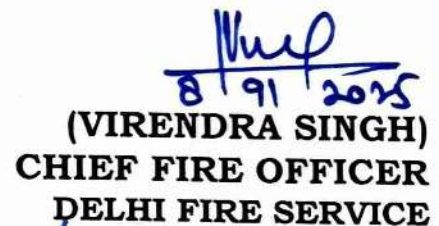 (VIRENDRA SINGH)
CHIEF FIRE OFFICER
DELHI FIRE SERVICE